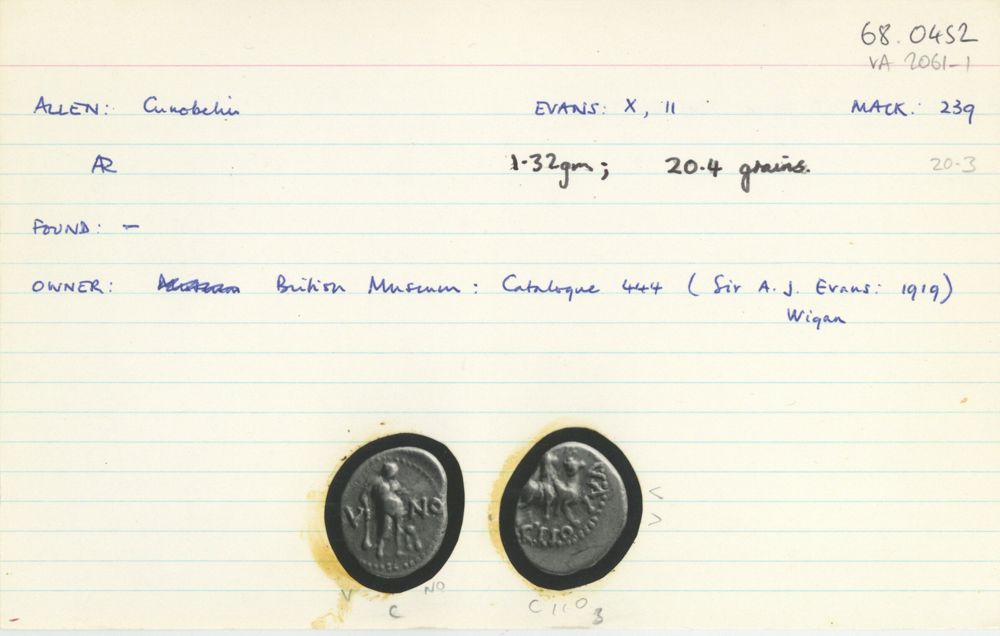 68.0452
VA 2061-1
ALLEN: Cunobelin EVANS: X, 11 MACK: 239
AR 1.32gm; 20.4 grains. 20.3
FOUND: —
OWNER: British Museum: Catalogue 444 (Sir A. J. Evans: 1919)
Wigan
V NO
<
>
V C NO
C I I O B